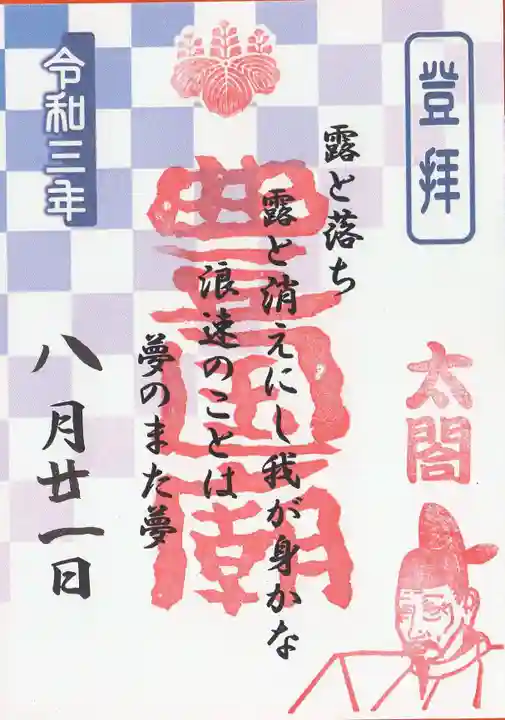 登拝
太閤
豊国廟
露と落ち
露と消えにし我が身かな
浪速のことは
夢のまた夢
令和三年
八月廿一日